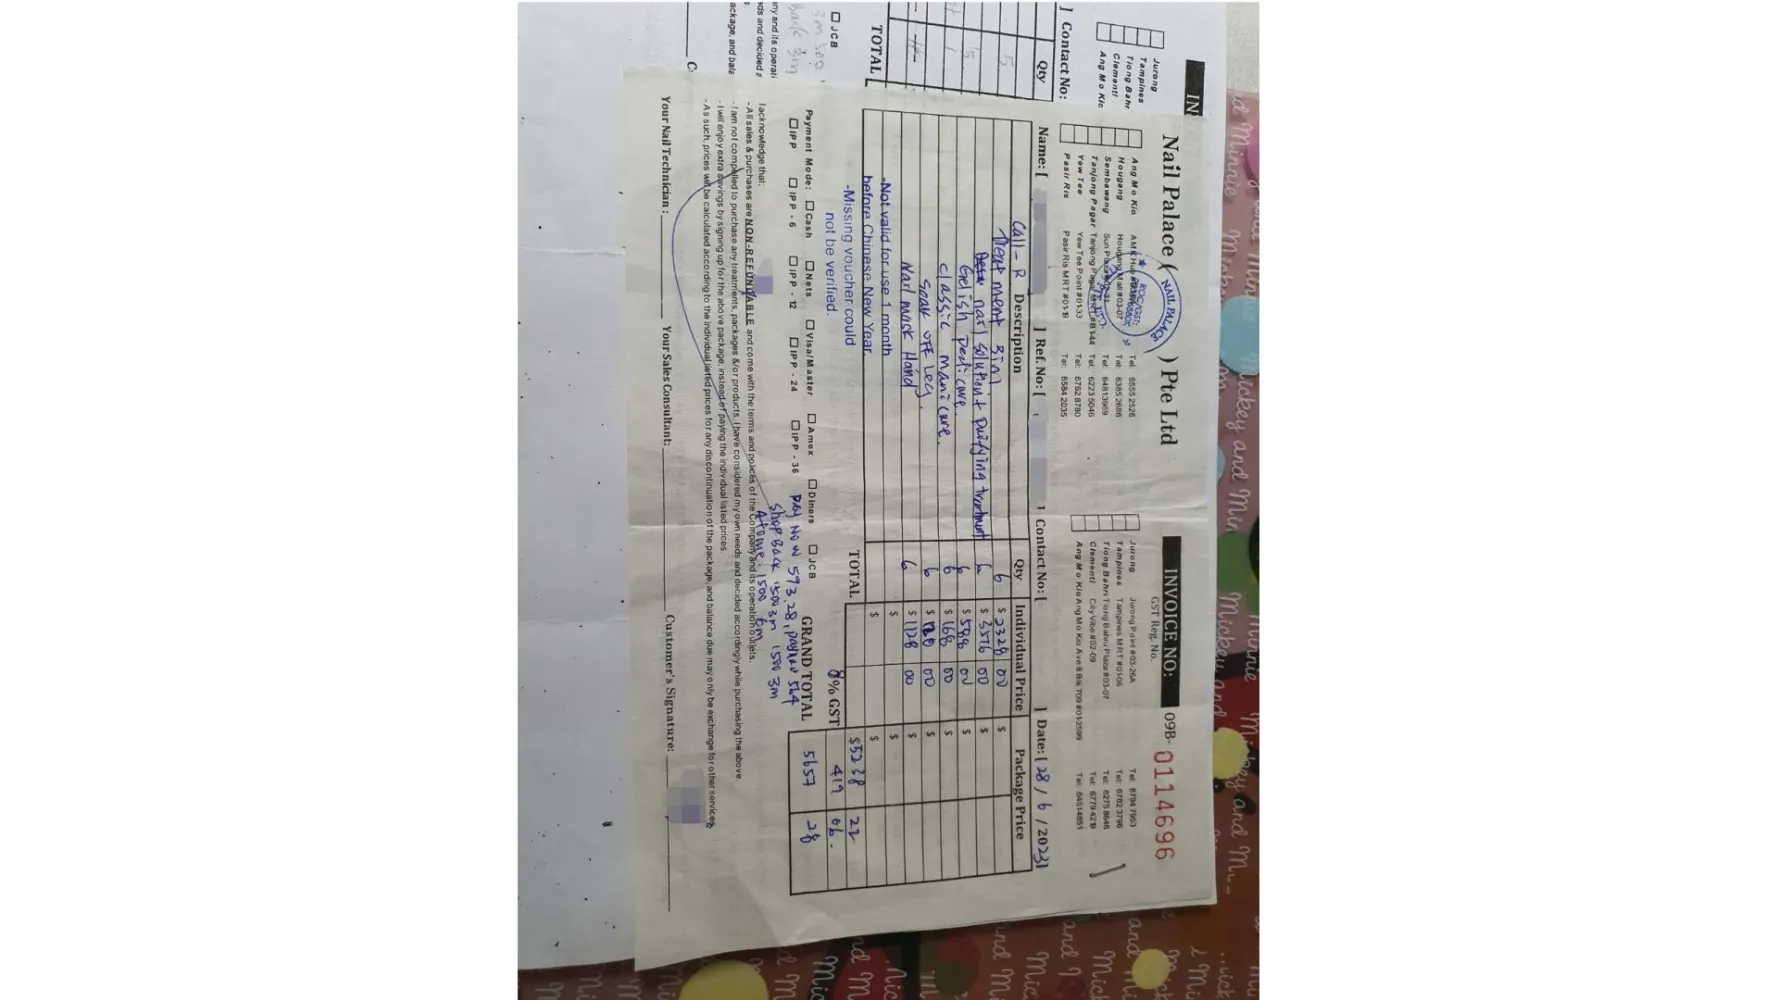 Nail Palace ( ) Pte Ltd
NAIL PALACE
ROC/GST:
INVOICE NO: 09B- 0114696
GST Reg. No.
Ang Mo Kio AMK Hub Tel: 6555 2526
Hougang Hougang Mall #03-07 Tel: 6385 2686
Sembawang Sun Plaza Tel: 6481 3969
Tanjong Pagar Tanjong Pagar MRT #B1-44 Tel: 6223 5046
Yew Tee Yew Tee Point #01-33 Tel: 6762 8780
Pasir Ris Pasir Ris MRT #01-19 Tel: 6584 2035
Jurong Jurong Point #03-26A Tel: 6794 7953
Tampines Tampines MRT #01-06 Tel: 6782 3796
Tiong Bahru Tiong Bahru Plaza #03-07 Tel: 6275 8646
Clementi City Vibe #02-09 Tel: 6779 4219
Ang Mo Kio Ang Mo Kio Ave 8 Blk 709 #01-2599 Tel: 6451 4851
Name: [ ] Ref. No: [ ] Contact No: [ ] Date: [ 28 / 6 / 2023 ]
Description Qty Individual Price Package Price
Call - R
Treatment 3 in 1 6 $ 2328 00 $
nail solution + purifying treatment 6 $ 3576 00 $
Gelish Pedicure 6 $ 588 00 $
classic manicure. 6 $ 168 00 $
soak off Leg. 6 $ 120 00 $
Nail mask Hand 6 $ 1128 00 $
-Not valid for use 1 month $ $
before Chinese New Year. $ $
-Missing voucher could
not be verified.
TOTAL $5238 22
8% GST 419 06.
GRAND TOTAL 5657 28
Payment Mode: Cash Nets Visa/Master Amex Diners JCB
IPP IPP - 6 IPP - 12 IPP - 24 IPP - 36
Pay Now 593.28, paylah 564
Shop Back 1500 3m 1500 3m
Atome: 1500 6m
I acknowledge that:
- All sales & purchases are NON-REFUNDABLE and come with the terms and polices of the Company and its operation outlets.
- I am not compelled to purchase any treatments, packages &/or products. I have considered my own needs and decided accordingly while purchasing the above.
- I will enjoy extra savings by signing up for the above package, instead of paying the individual listed prices.
- As such, prices will be calculated according to the individual listed prices for any discontinuation of the package, and balance due may only be exchange for other services
Your Nail Technician: Your Sales Consultant: Customer's Signature:
IN
Jurong
Tampines
Tiong Bahr
Clementi
Ang Mo Kio
] Contact No:
Qty
TOTAL
JCB